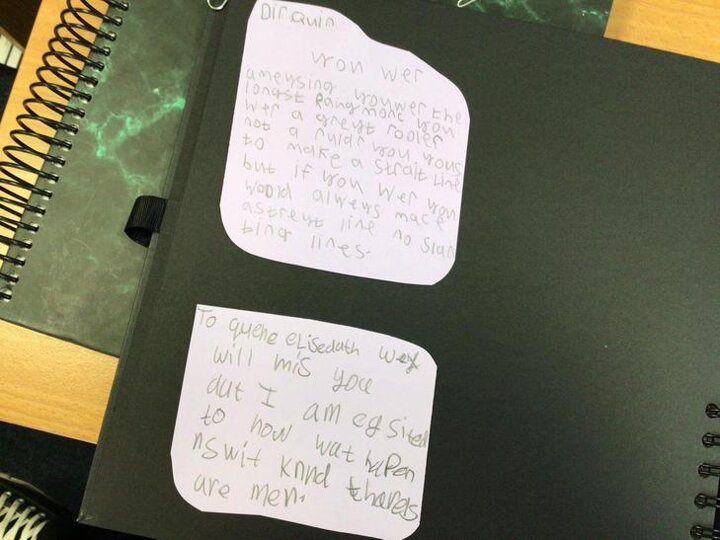 Dir quin
you wer
ameysing you wer the
longst Raing mone you
wer a greyt rooler
not a rular you yous
to make a strait line
but if you wer you
woold always mace
a streyt line no slan
ting lines.
To quene eLisedath wey
will mis you
dut I am egsited
to now wat hapen
nswit knnd
are men.